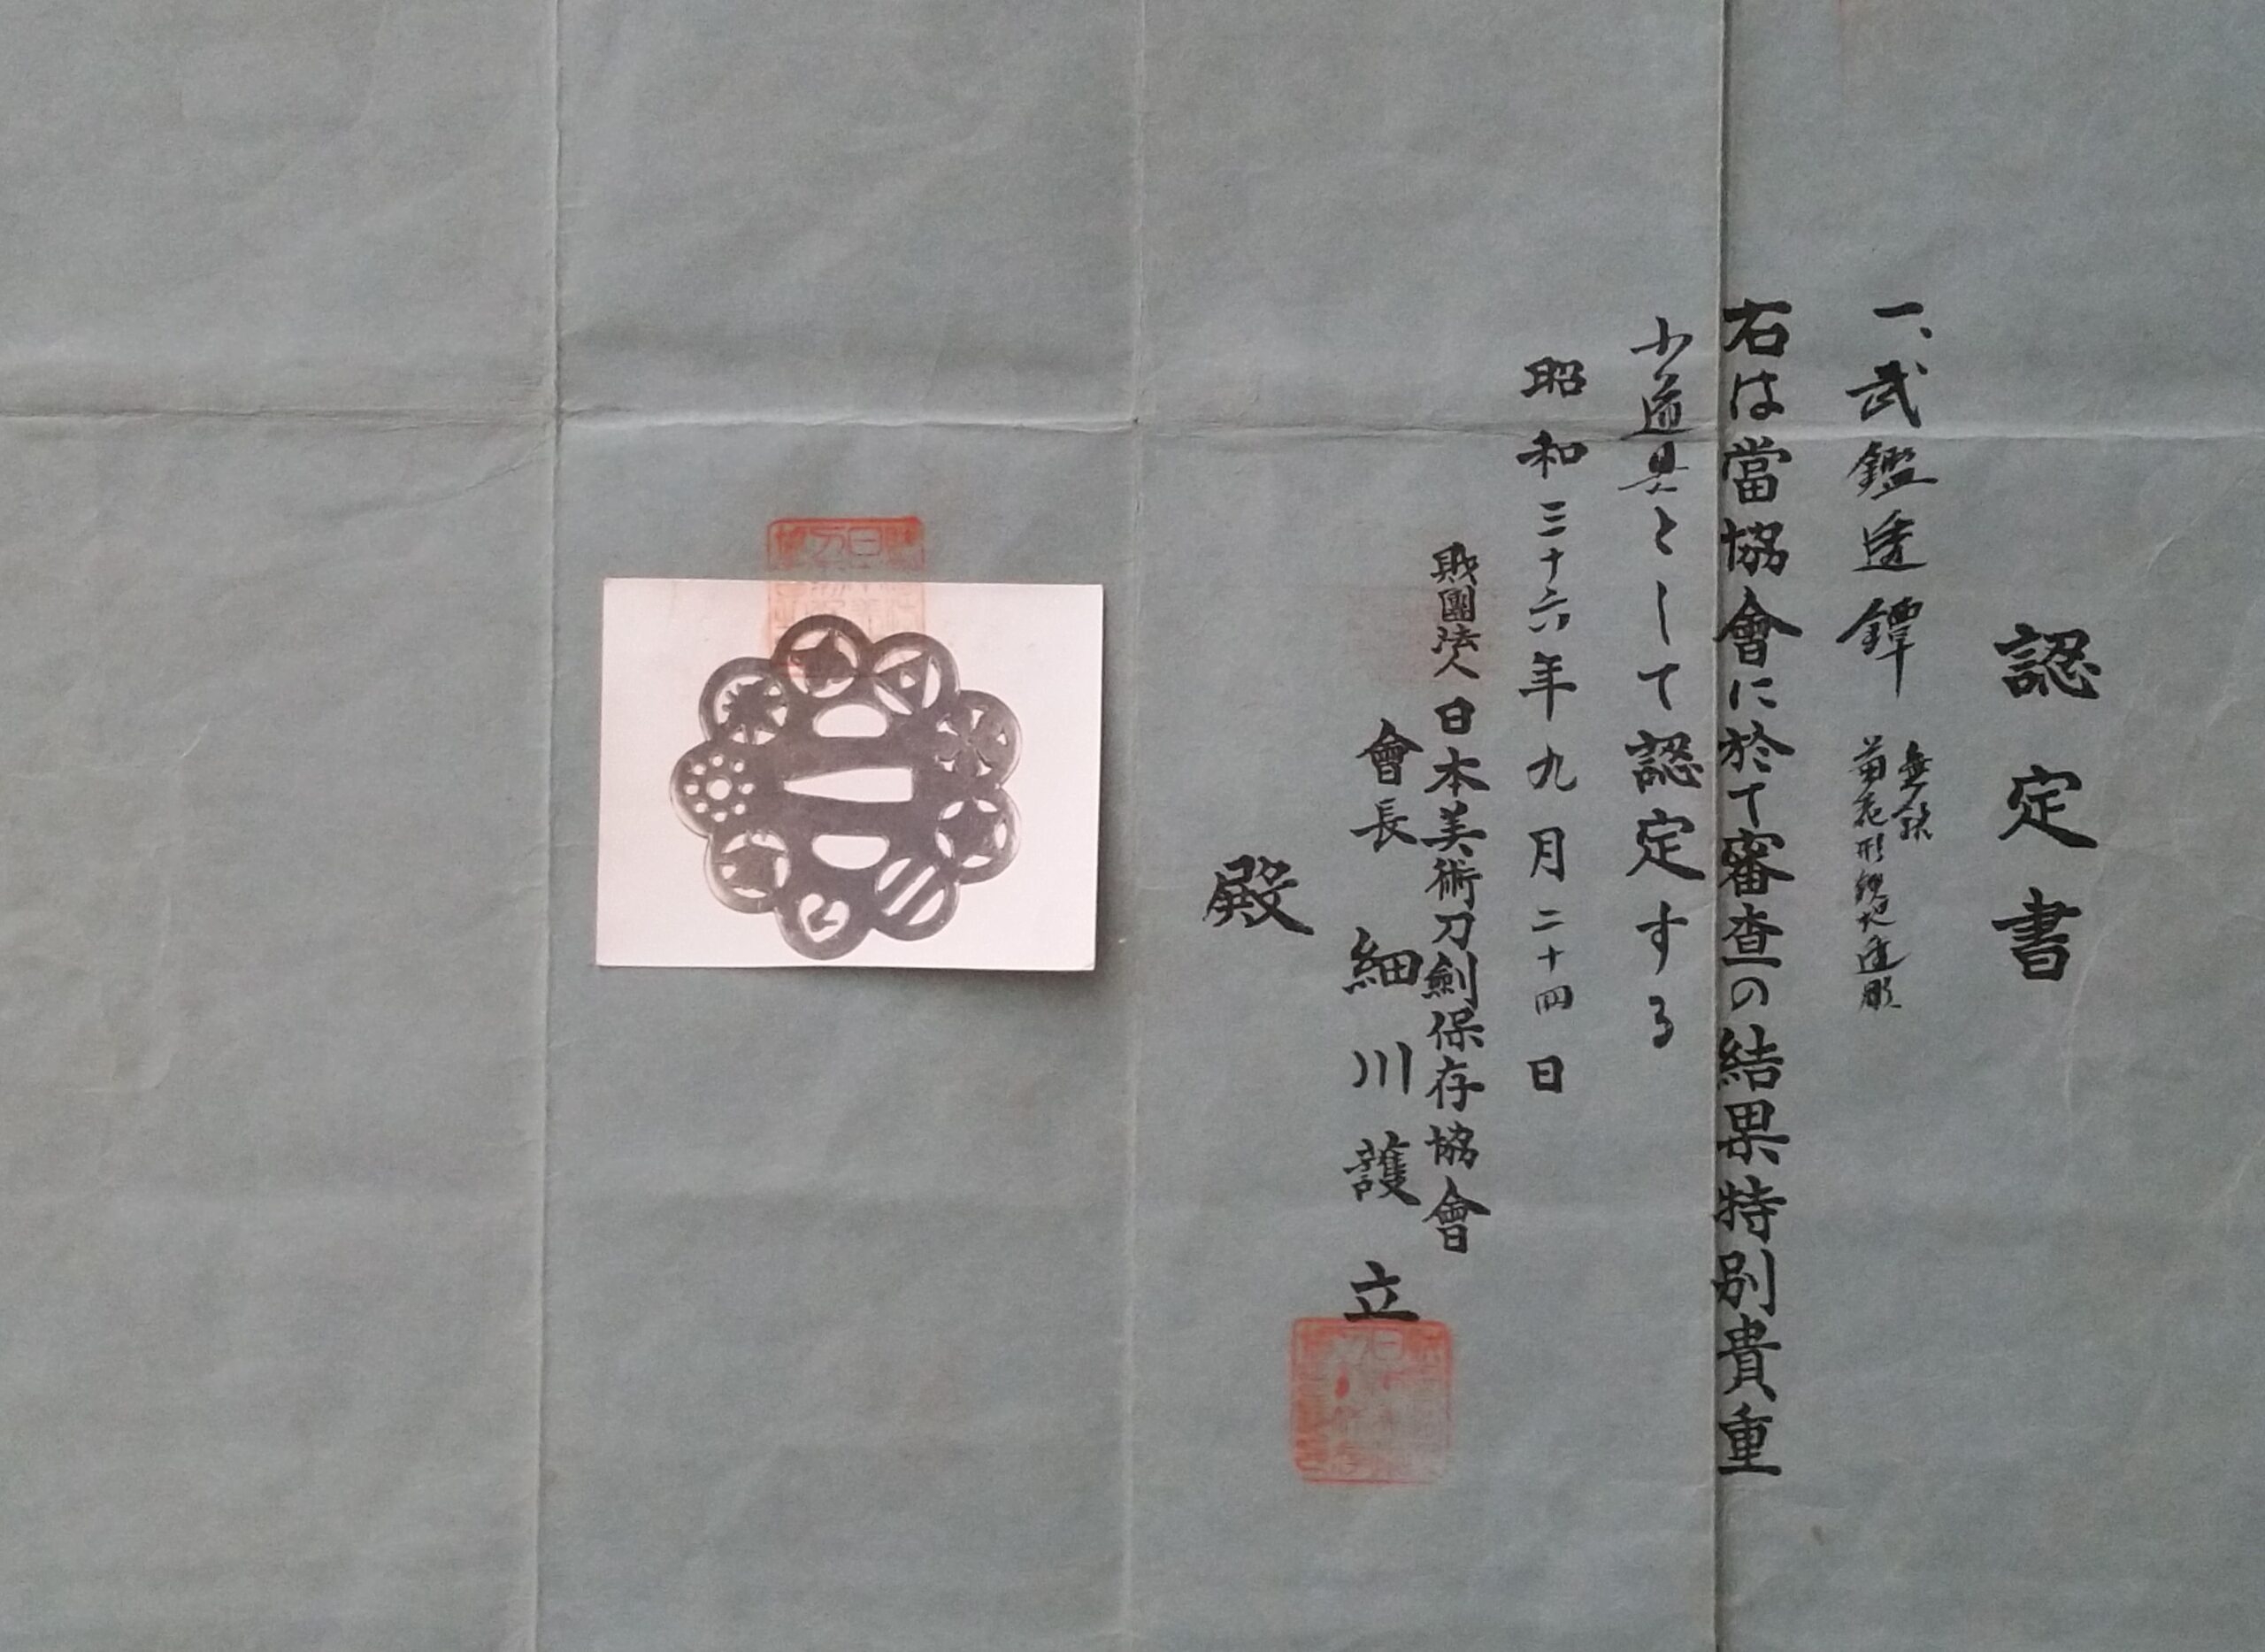 認定書
一、武鑑透鐔
無銘
菊花形鉄地透彫
右は當協會に於て審査の結果特別貴重
小道具として認定する
昭和三十六年九月二十四日
財團法人日本美術刀劍保存協會
會長 細川護立
殿